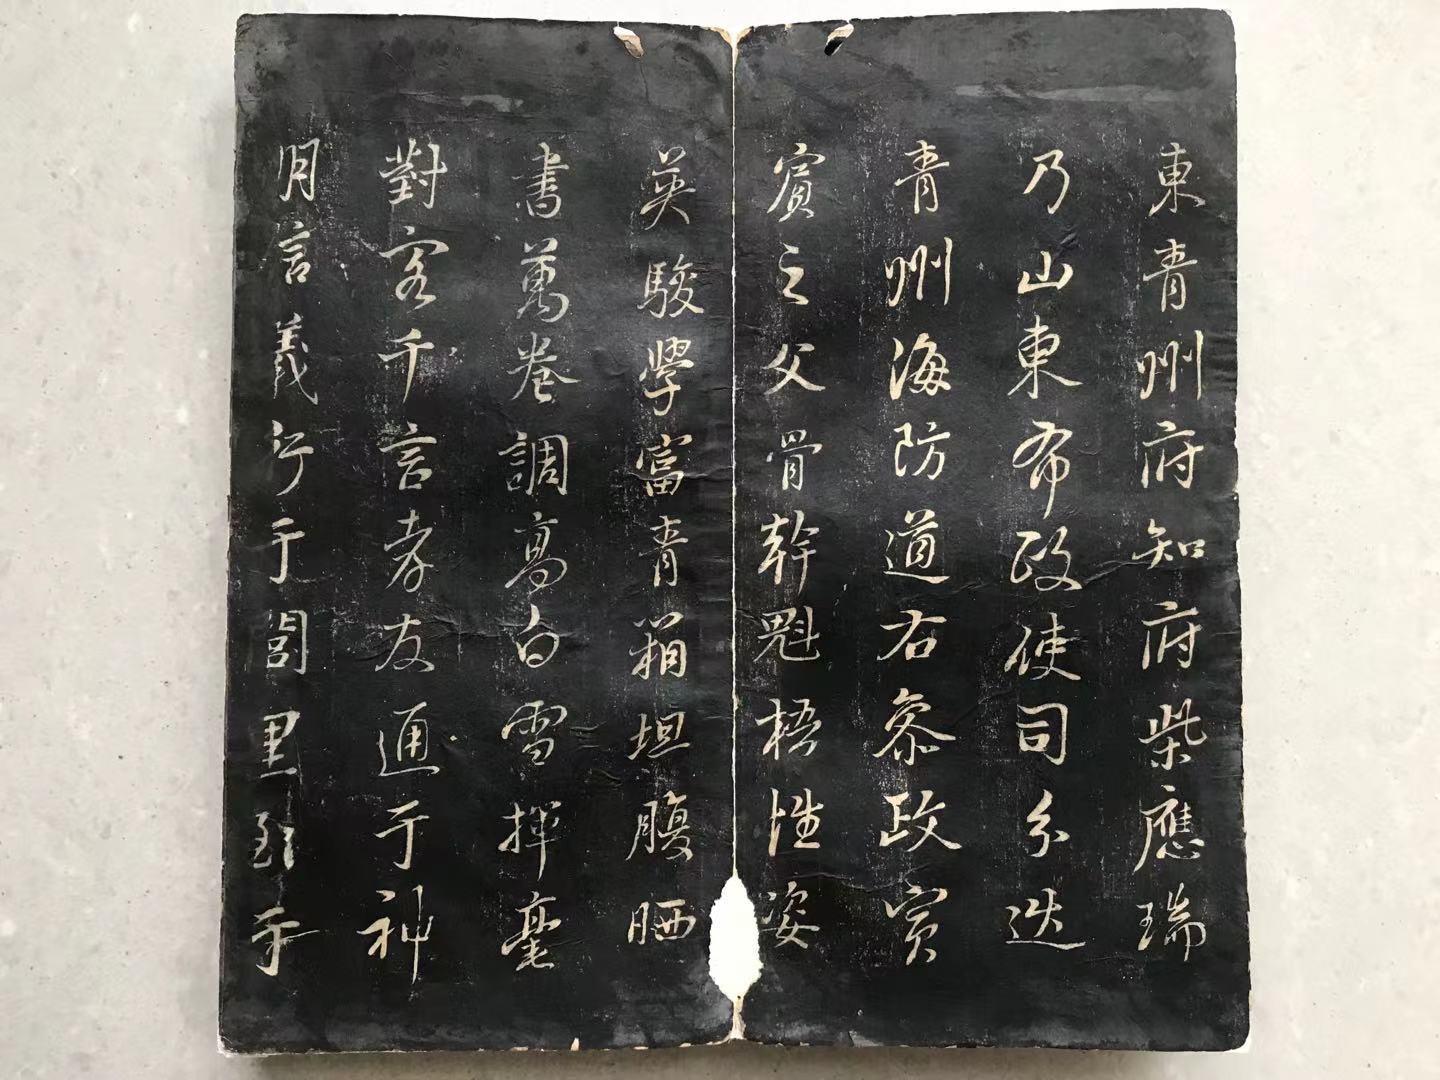 東青州府知府柴應瑞
乃山東布政使司分巡
青州海防道右參政寅
賓之父骨幹魁梧性姿
英駿學富青箱坦腹晒
書萬卷調高白雪揮毫
對客千言孝友通于神
明言義行于閭里